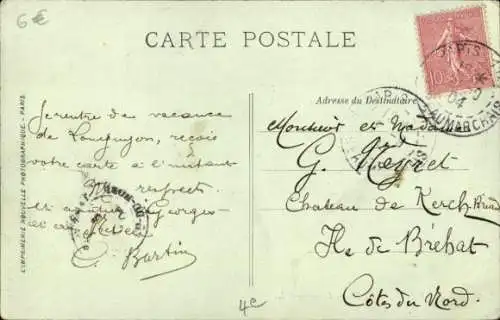 6€
CARTE POSTALE
Adresse du Destinataire
L'IMPRIMERIE NOUVELLE PHOTOGRAPHIQUE - PARIS
Je rentre de vacance
de Longuyon, reçois
votre carte à l'instant
respect
et amitiés Georges
G. Bartin
Monsieur et Madame
G. Meyret
Chateau de Kerch
Ile de Bréhat
Côtes du Nord.
PARIS
10
04
BEAUMARCHAIS
4c